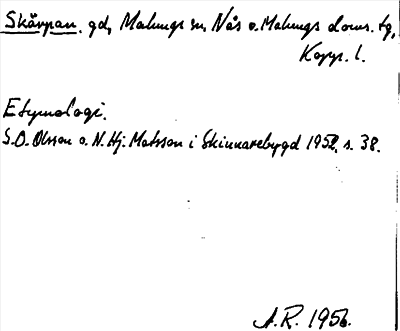 Skärpan. gd, Malungs sn, Nås o. Malungs doms. tg,
Kopp. l.
Etymologi.
S.O. Olsson o. N. Hj. Matsson i Skinnarebygd 1952, s. 38.
A.R. 1956.